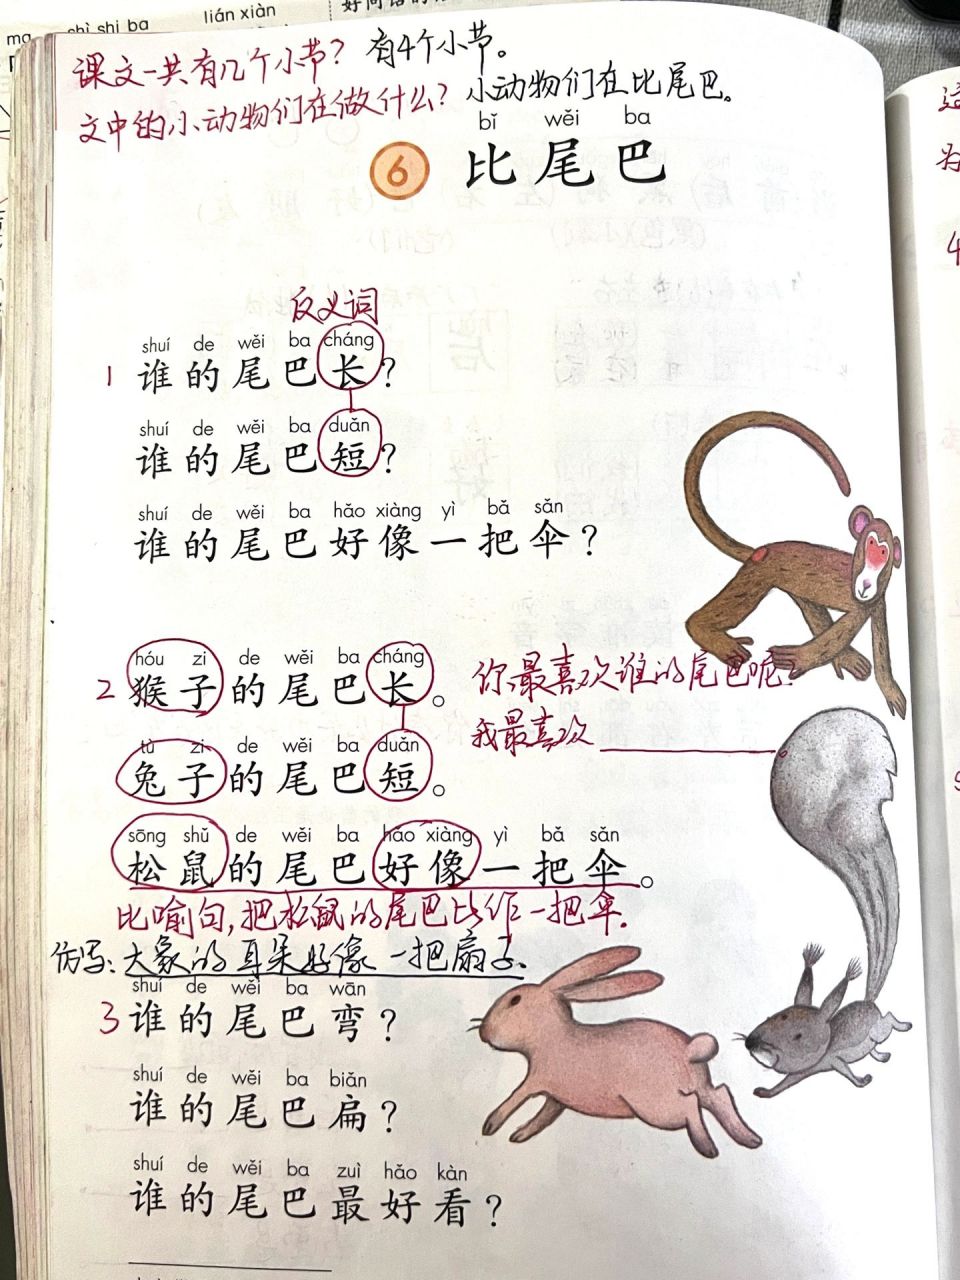 lián xiàn
shì shi ba
课文一共有几个小节？有4个小节。
文中的小动物们在做什么？小动物们在比尾巴。
bǐ wěi ba
6 比尾巴
反义词
shuí de wěi ba cháng
1 谁的尾巴长？
shuí de wěi ba duǎn
谁的尾巴短？
shuí de wěi ba hǎo xiàng yì bǎ sǎn
谁的尾巴好像一把伞？
hóu zi de wěi ba cháng
2 猴子的尾巴长。
你最喜欢谁的尾巴呢？
我最喜欢
tù zi de wěi ba duǎn
兔子的尾巴短。
sōng shǔ de wěi ba hǎo xiàng yì bǎ sǎn
松鼠的尾巴好像一把伞。
比喻句，把松鼠的尾巴比作一把伞.
仿写：大象的耳朵好像一把扇子.
shuí de wěi ba wān
3 谁的尾巴弯？
shuí de wěi ba biǎn
谁的尾巴扁？
shuí de wěi ba zuì hǎo kàn
谁的尾巴最好看？